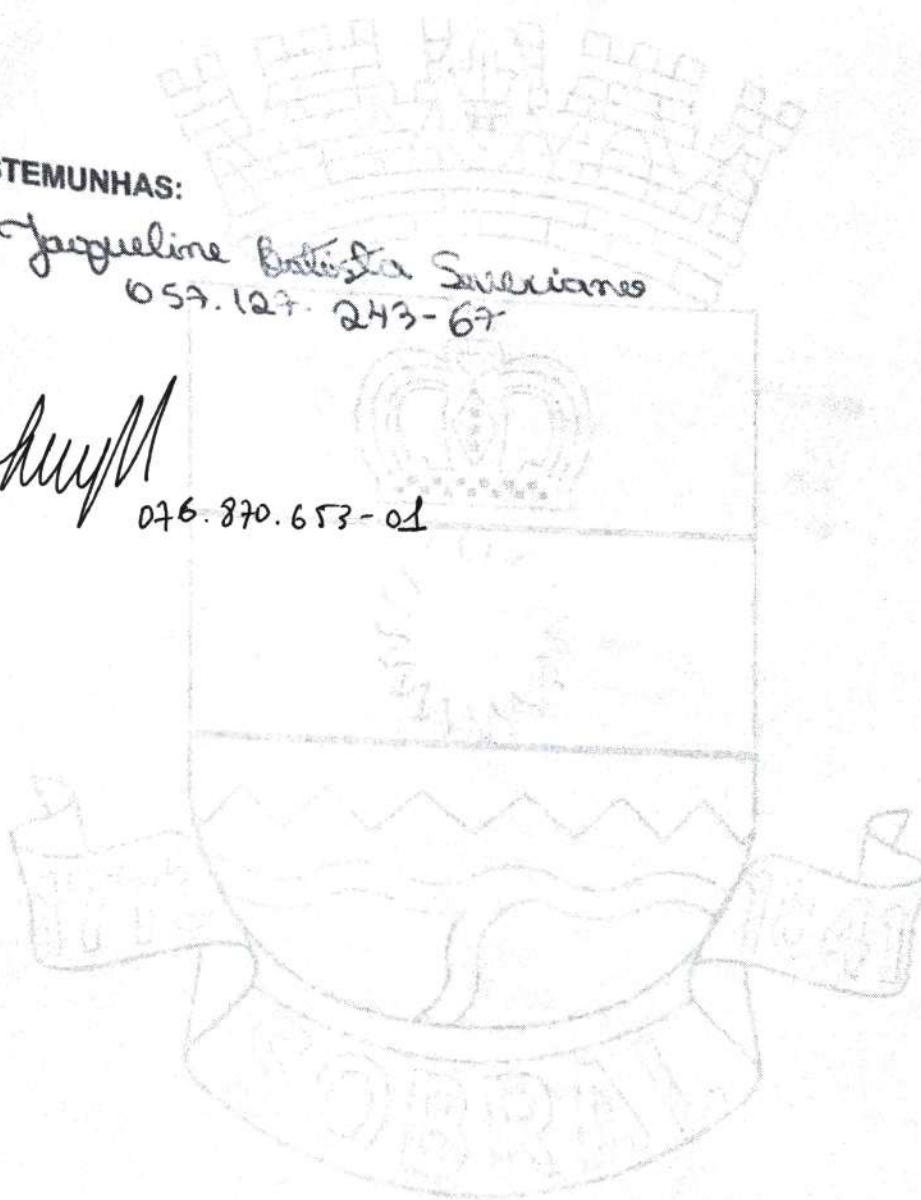 STEMUNHAS:
Jacqueline Batista Severiano
057.127.243-67
076.870.653-01
1841
SOBRAL